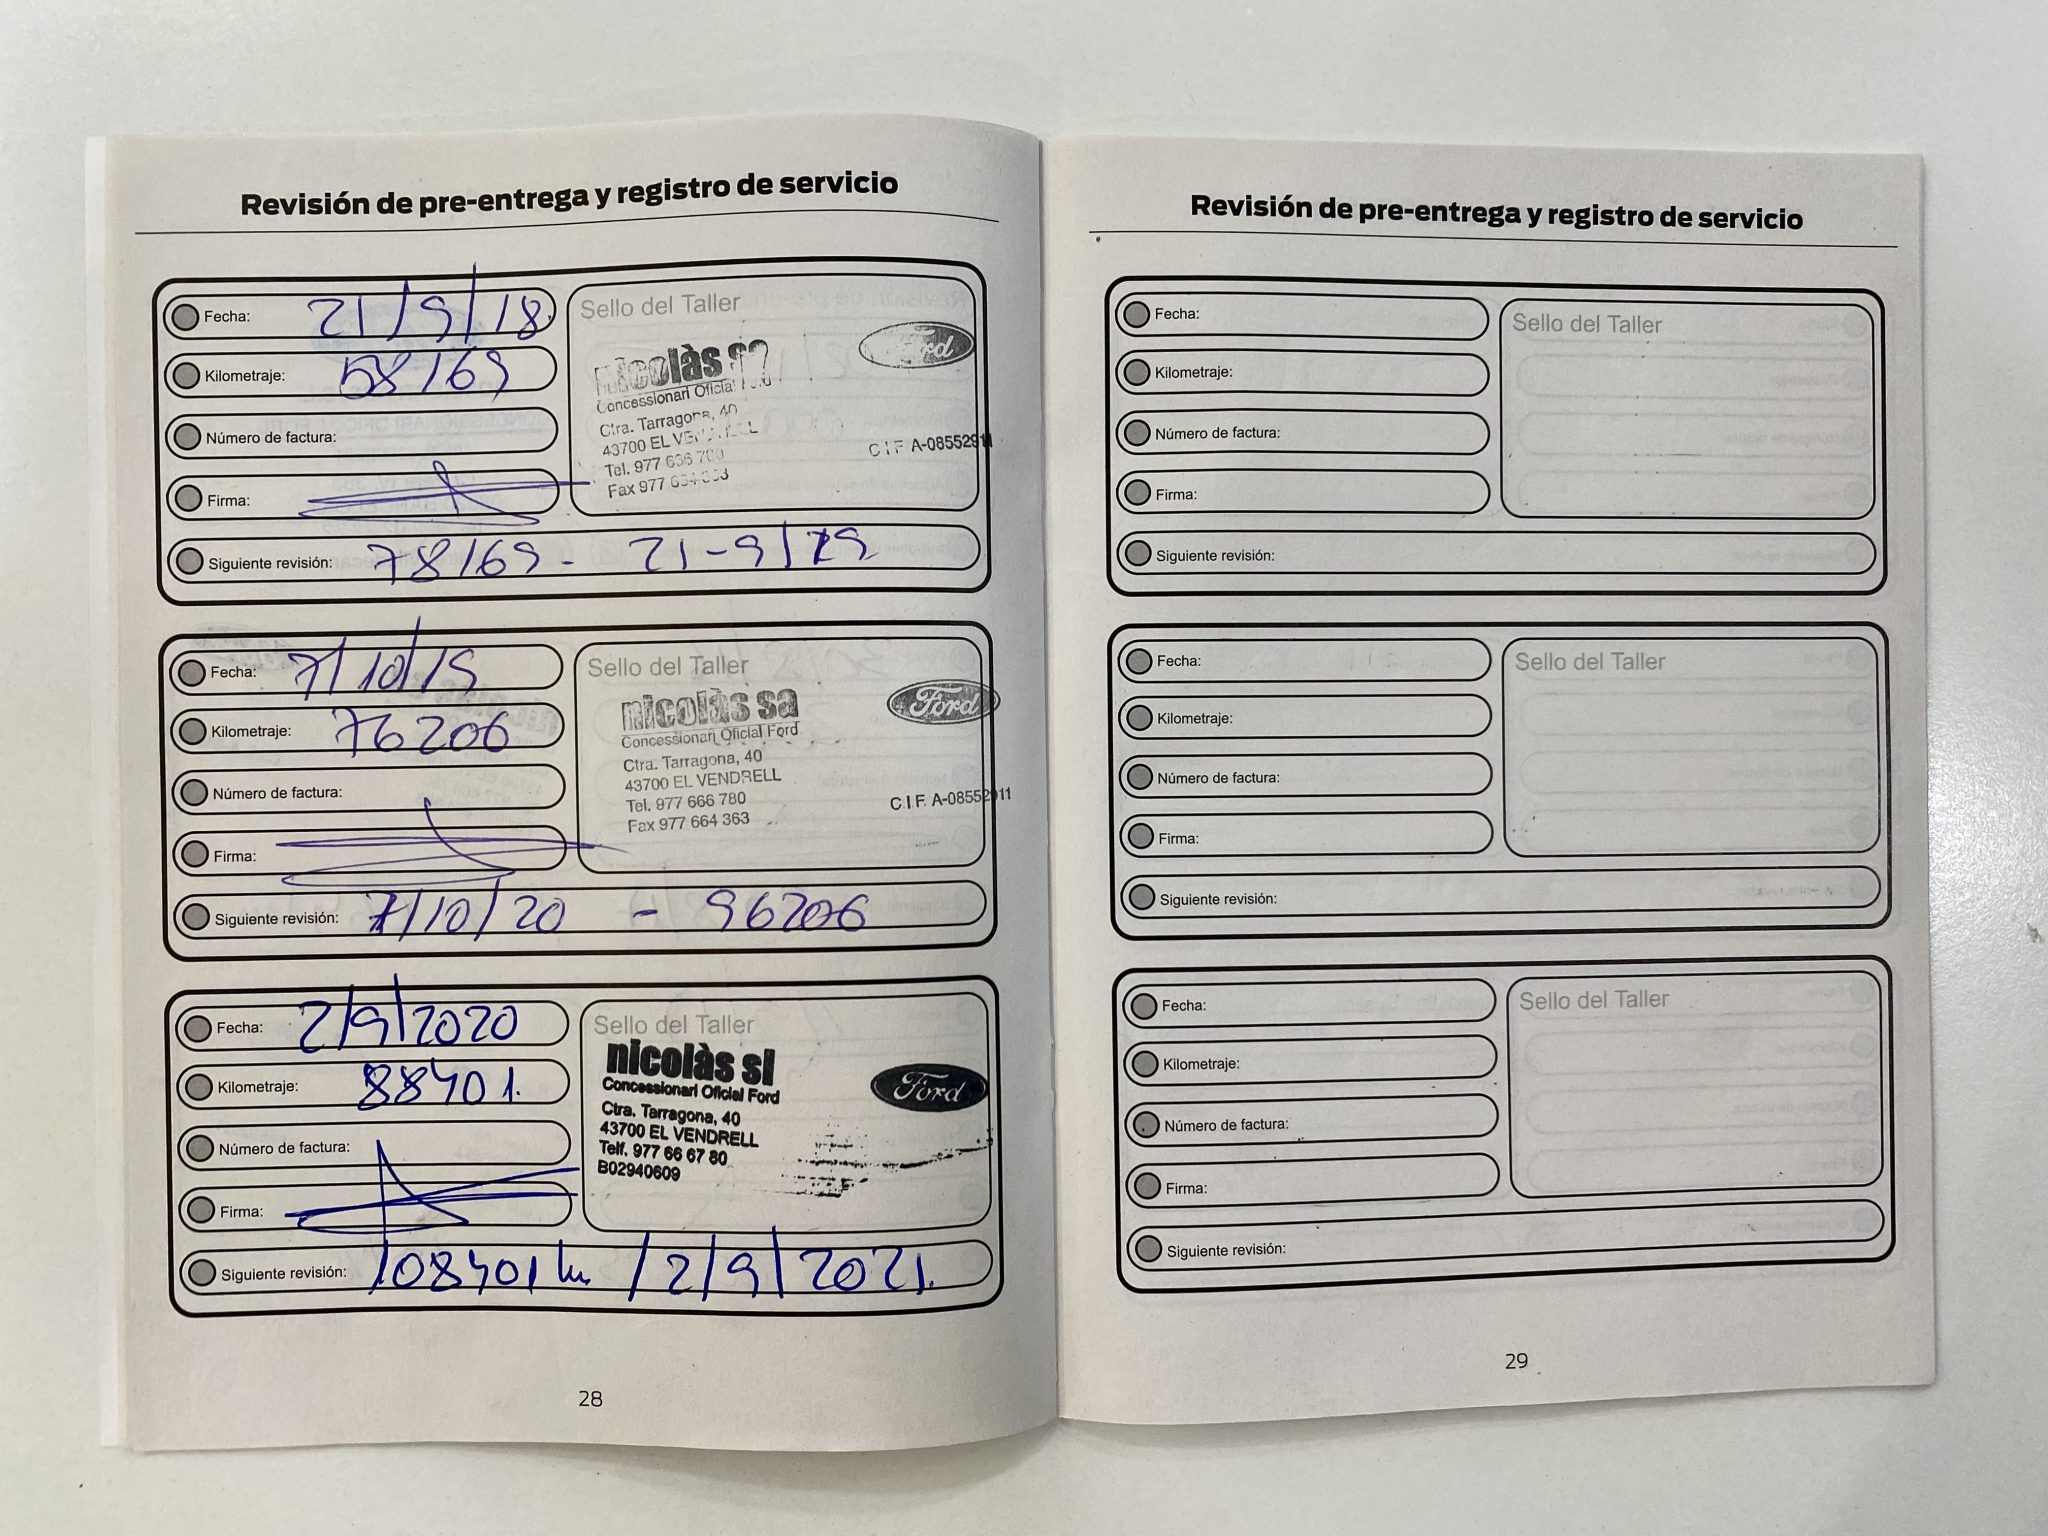 Revisión de pre-entrega y registro de servicio
Fecha: 21/9/18.
Kilometraje: 58169
Número de factura:
Firma:
Siguiente revisión: 78169 - 21-9/19
Sello del Taller
Ford
nicolàs
Concessionari Oficial Ford
Ctra. Tarragona, 40
43700 EL VENDRELL
Tel. 977 666 780
C I F A-08552911
Fax 977 664 363
Fecha: 7/10/19
Kilometraje: 76206
Número de factura:
Firma:
Siguiente revisión: 7/10/20 - 96206
Sello del Taller
nicolàs sa
Ford
Concessionari Oficial Ford
Ctra. Tarragona, 40
43700 EL VENDRELL
Tel. 977 666 780
C.I.F. A-08552911
Fax 977 664 363
Fecha: 2/9/2020
Kilometraje: 88401.
Número de factura:
Firma:
Siguiente revisión: 108401 km /2/9/2021.
Sello del Taller
nicolàs sl
Ford
Concessionari Oficial Ford
Ctra. Tarragona, 40
43700 EL VENDRELL
Telf. 977 66 67 80
B02940609
28
Revisión de pre-entrega y registro de servicio
Fecha:
Kilometraje:
Número de factura:
Firma:
Siguiente revisión:
Sello del Taller
Fecha:
Kilometraje:
Número de factura:
Firma:
Siguiente revisión:
Sello del Taller
Fecha:
Kilometraje:
Número de factura:
Firma:
Siguiente revisión:
Sello del Taller
29